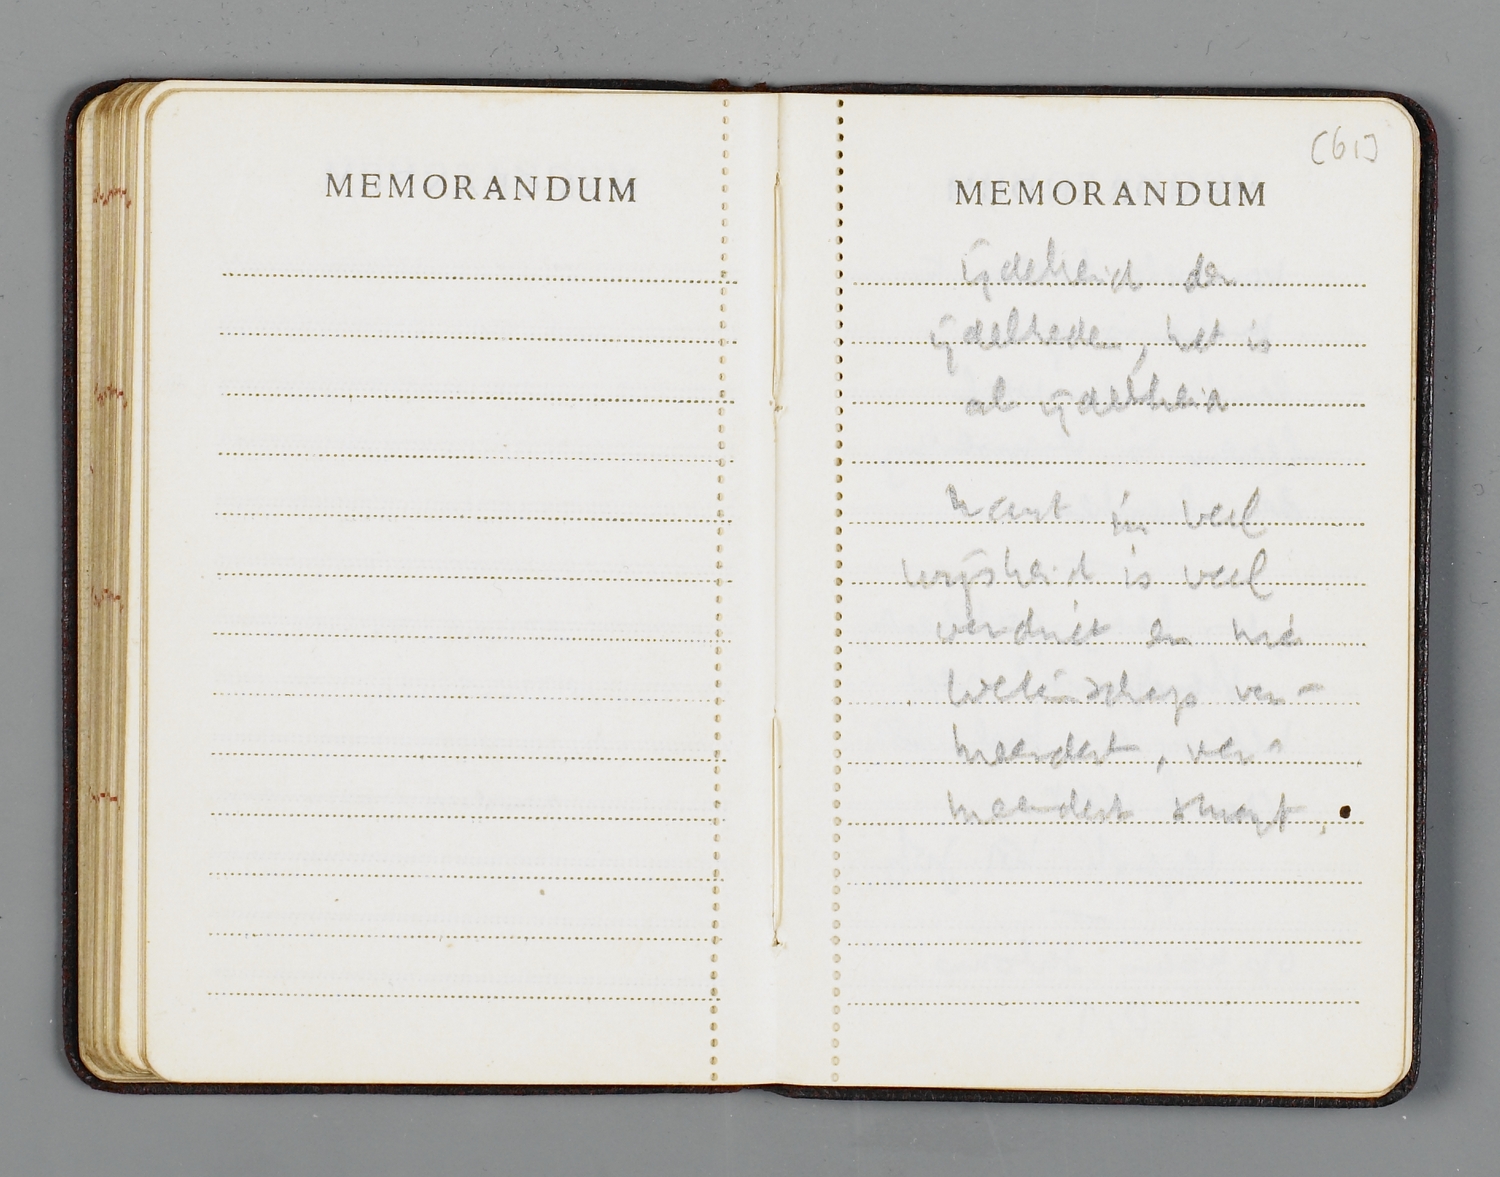 MEMORANDUM
[61]
MEMORANDUM
ijdelheid der
ijdelheden, het is
al ijdelheid
want in veel
wijsheid is veel
verdriet en wie
wetenschap ver-
meerdert, ver-
meerdert smart.